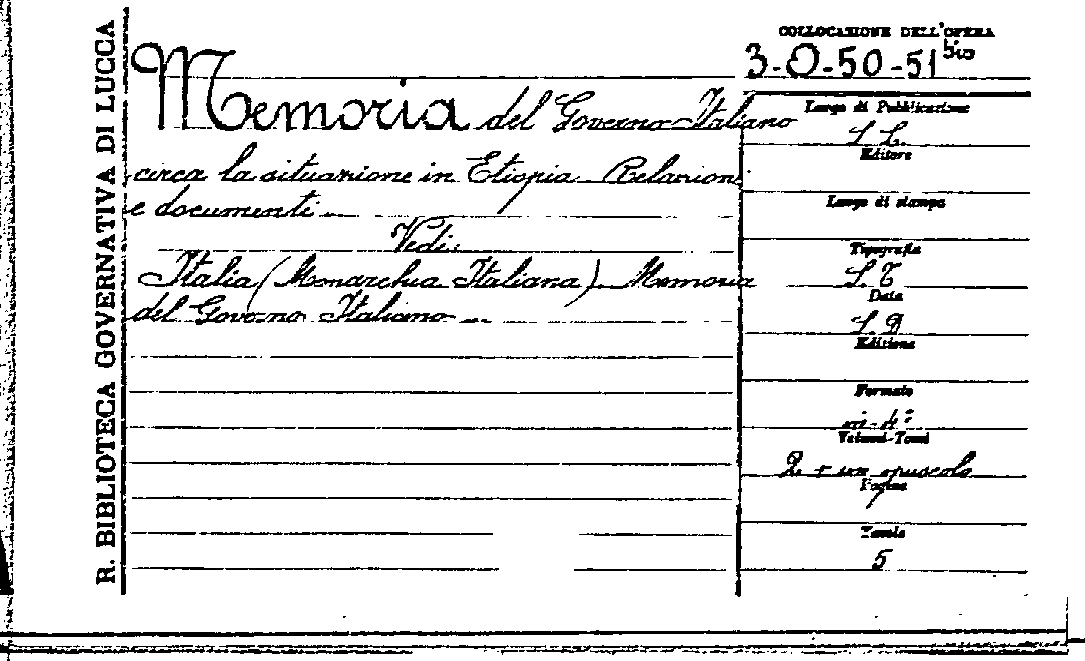 R. BIBLIOTECA GOVERNATIVA DI LUCCA
COLLOCAZIONE DELL'OPERA
3-O-50-51 bis
Memoria del Governo Italiano
circa la situazione in Etiopia Relazioni
e documenti
Vedi:
Italia (Monarchia Italiana) Memoria
del Governo Italiano
Luogo di Pubblicazione
S. L.
Editore
Luogo di stampa
Tipografia
S. T.
Data
S. D.
Edizione
Formato
in-4°
Volumi-Tomi
2 + un opuscolo
Pagine
Tavole
5